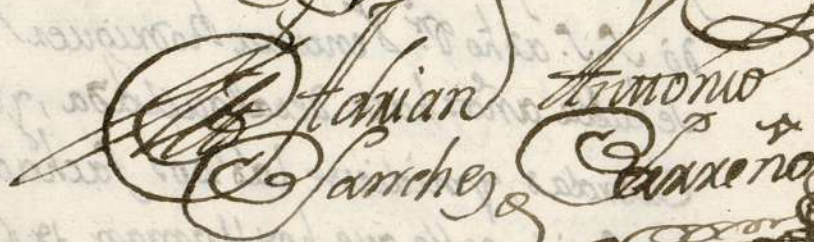 Adrian Anttonio
Sanches Carreño